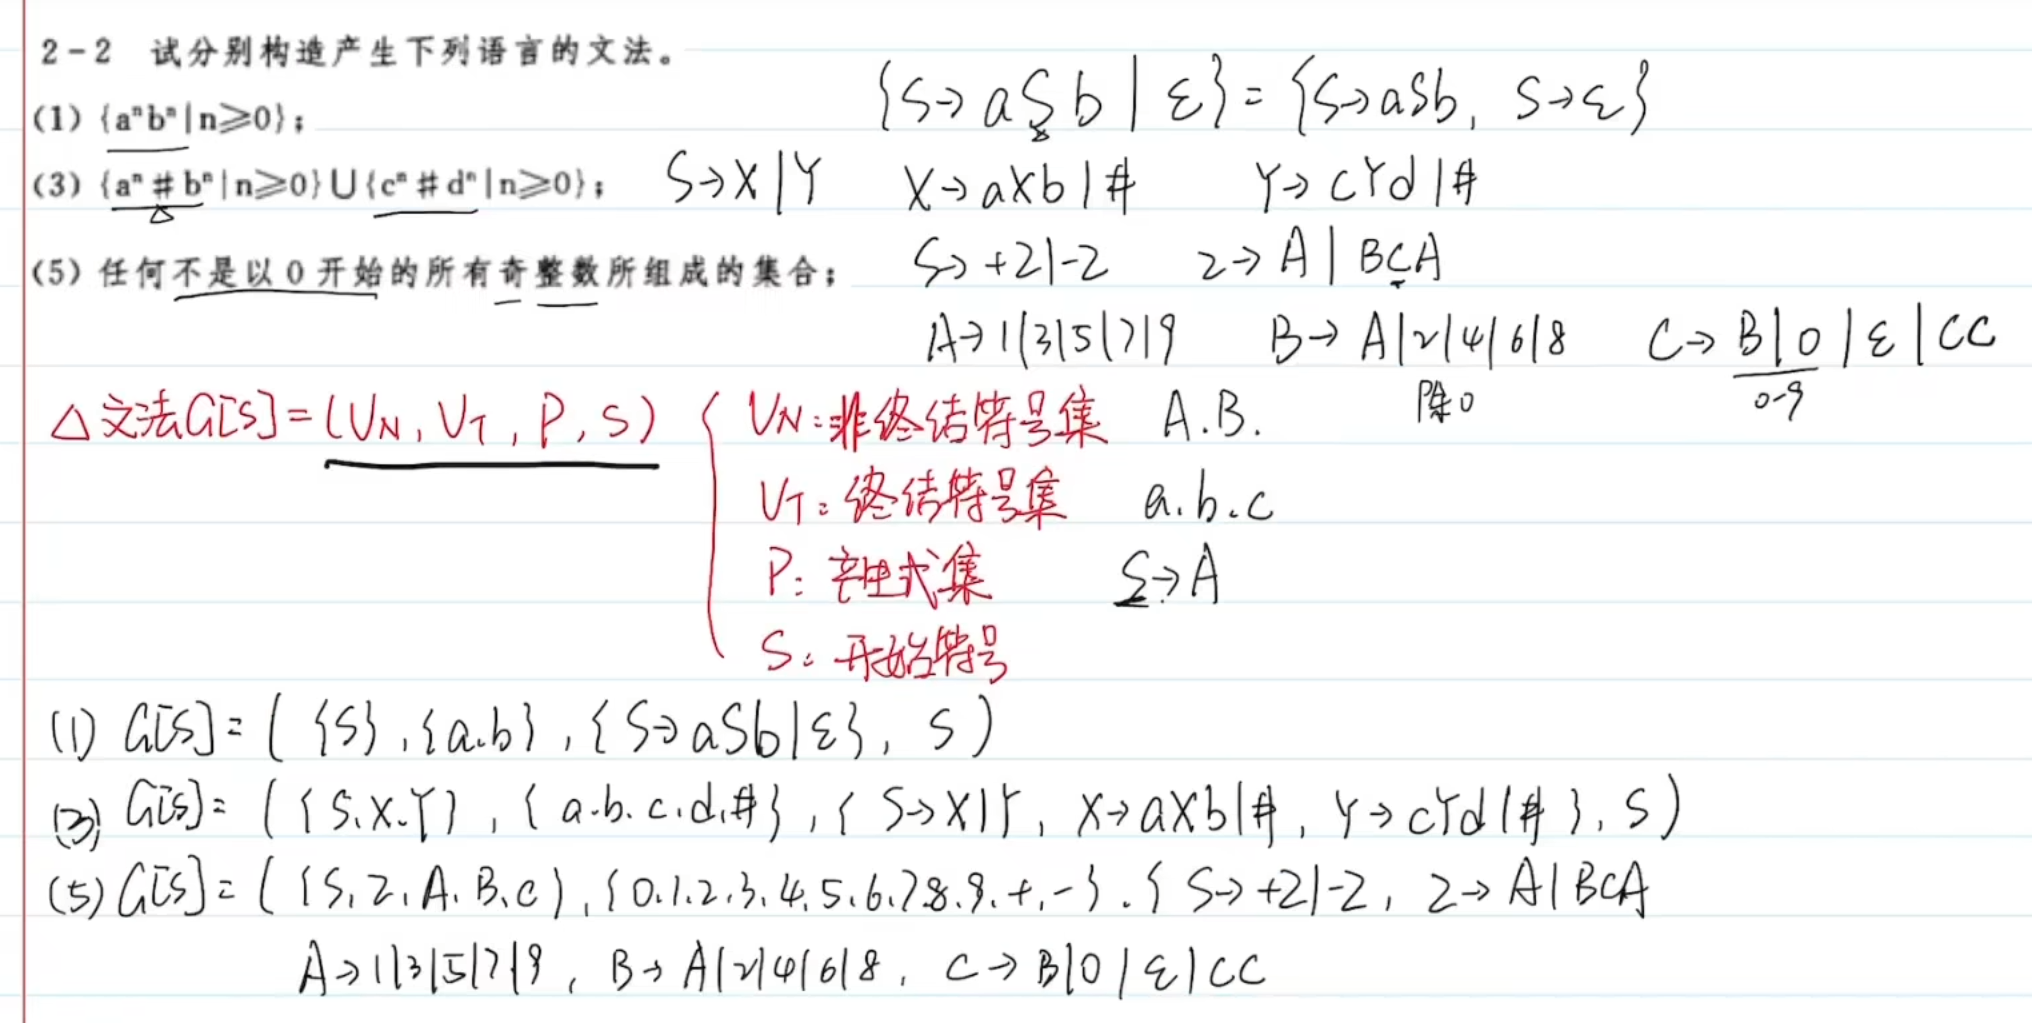 2-2 试分别构造产生下列语言的文法。
{S→aSb|ε}={S→aSb, S→ε}
(1) {aⁿbⁿ|n≥0};
(3) {aⁿ#bⁿ|n≥0}∪{cⁿ#dⁿ|n≥0}; S→X|Y X→aXb|# Y→cYd|#
(5) 任何不是以0开始的所有奇整数所组成的集合; S→+Z|-Z Z→A|BCA
A→1|3|5|7|9 B→A|2|4|6|8 C→B|0|ε|CC
除0 0-9
△文法G[S]=(VN, VT, P, S) { VN:非终结符号集 A.B.
VT:终结符号集 a.b.c
P:产生式集 S→A
S:开始符号
(1) G[S]=({S},{a.b},{S→aSb|ε}, S)
(3) G[S]=({S.X.Y},{a.b.c.d.#},{S→X|Y, X→aXb|#, Y→cYd|#}, S)
(5) G[S]=({S.Z.A.B.C},{0.1.2.3.4.5.6.7.8.9.+.-}.{S→+Z|-Z, Z→A|BCA
A→1|3|5|7|9, B→A|2|4|6|8, C→B|0|ε|CC